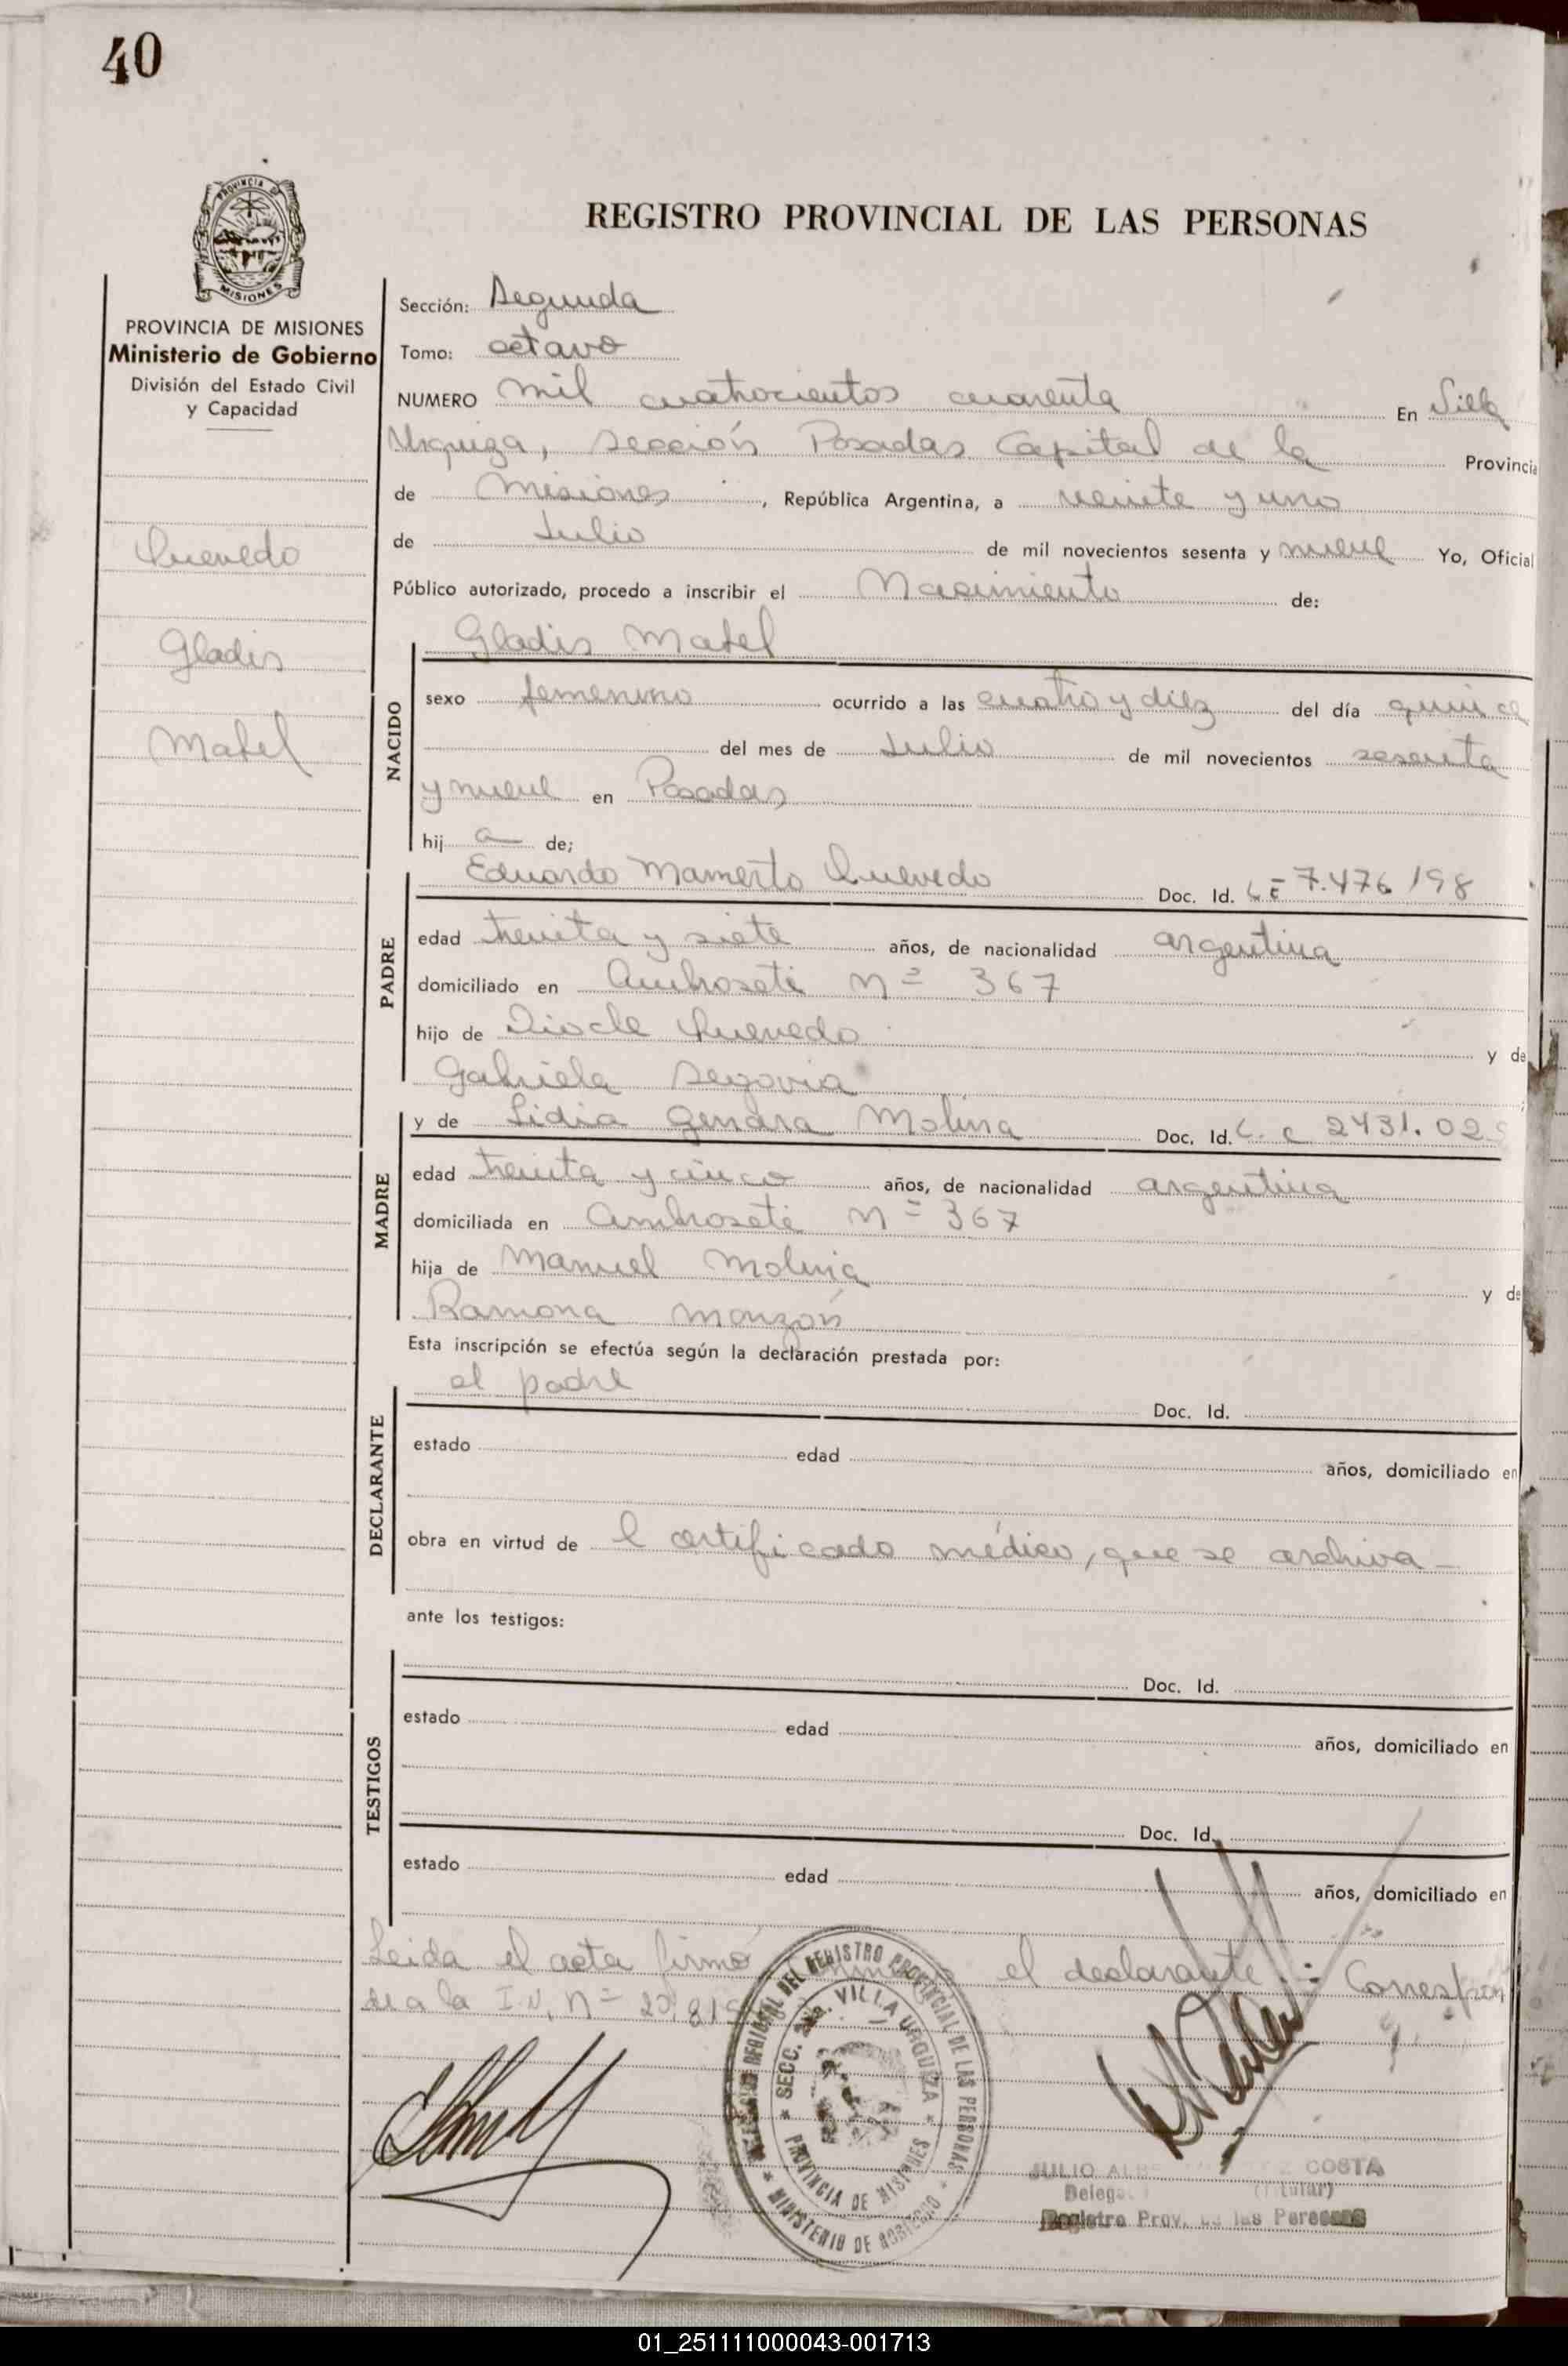 40
PROVINCIA DE
MISIONES
REGISTRO PROVINCIAL DE LAS PERSONAS
PROVINCIA DE MISIONES
Ministerio de Gobierno
División del Estado Civil
y Capacidad
Quevedo
Gladis
Mabel
Sección: Segunda
Tomo: octavo
NUMERO mil cuatrocientos cuarenta En Villa
Urquiza, sección Posadas Capital de la Provincia
de Misiones, República Argentina, a veinte y uno
de Julio de mil novecientos sesenta y nueve Yo, Oficial
Público autorizado, procedo a inscribir el Nacimiento de:
Gladis Mabel
NACIDO
sexo femenino ocurrido a las cuatro y diez del día quince
del mes de Julio de mil novecientos sesenta
y nueve en Posadas
hij a de;
Eduardo Mamerto Quevedo Doc. Id. L E 7.476 198
PADRE
edad treinta y siete años, de nacionalidad argentina
domiciliado en Ambroseti nº 367
hijo de Diocle Quevedo y de
Gabriela Segovia
y de Lidia Genara Molina Doc. Id. L. c 2431.02
MADRE
edad treinta y cinco años, de nacionalidad argentina
domiciliada en Ambroseti nº 367
hija de Manuel Molina y de
Ramona Monzón
Esta inscripción se efectúa según la declaración prestada por:
el padre Doc. Id.
DECLARANTE
estado edad años, domiciliado en
obra en virtud de l certificado médico, que se archiva -
ante los testigos:
Doc. Id.
TESTIGOS
estado edad años, domiciliado en
Doc. Id.
estado edad años, domiciliado en
Leida el acta firmó el declarante.: Correspon
de a la I.N. nº
DEL REGISTRO PROVINCIAL DE LAS PERSONAS
SECC. 2da. VILLA URQUIZA
PROVINCIA DE MISIONES
MINISTERIO DE GOBIERNO
JULIO COSTA
(Titular)
Registro Prov. de las Personas
01_251111000043-001713